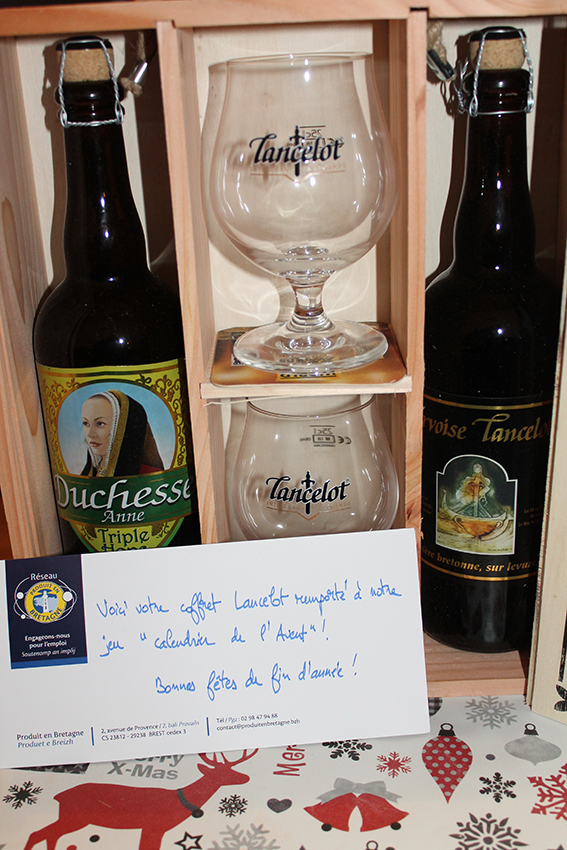 25cl
Lancelot
Lancelot
25cl
CE
Duchesse
Anne
Triple
Lancelot
bretonne, sur
Réseau
PRODUIT EN
BRETAGNE
Engageons-nous
pour l'emploi
Soutenomp an implij
Voici votre coffret Lancelot remporté à notre
jeu " calendrier de l'Avent" !
Bonnes fêtes de fin d'année !
Produit en Bretagne
Produet e Breizh
2, avenue de Provence / 2, bali Proveñs
CS 23812 - 29238 BREST cedex 3
Tél / Pgz : 02 98 47 94 88
contact@produitenbretagne.bzh
Merry
X-Mas